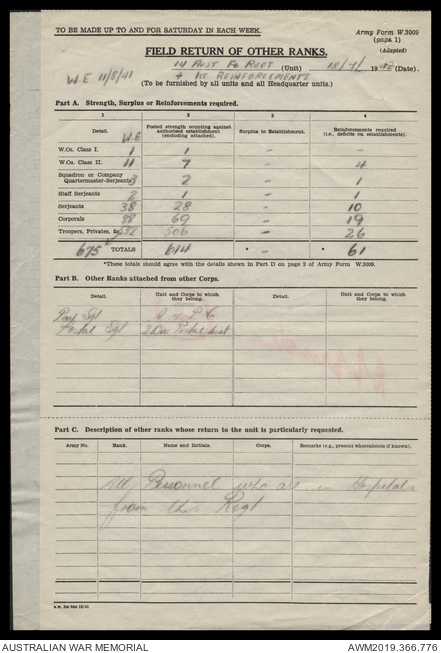 TO BE MADE UP TO AND FOR SATURDAY IN EACH WEEK.
Army Form W.3009
(page 1)
(Adapted)
FIELD RETURN OF OTHER RANKS.
14 AUST FD REGT (Unit) 18/7/1942 (Date).
W.E 11/8/41 + 1ST REINFORCEMENTS
(To be furnished by all units and all Headquarter units.)
Part A. Strength, Surplus or Reinforcements required.
1 2 3 4
Detail. Posted strength counting against authorised establishment (excluding attached). Surplus to Establishment. Reinforcements required (i.e., deficits on establishments).
W.E
W.Os. Class I. 1 1 – –
W.Os. Class II. 11 7 – 4
Squadron or Company Quartermaster-Serjeants 3 2 1
Staff Serjeants 2 1 1
Serjeants 38 28 10
Corporals 88 69 19
Troopers, Privates, &c. 532 506 26
675 TOTALS 614 * – * 61
*These totals should agree with the details shown in Part D on page 2 of Army Form W.3009.
Part B. Other Ranks attached from other Corps.
Detail. Unit and Corps to which they belong. Detail. Unit and Corps to which they belong.
Pay Sgt
Postal Sgt 2 Div Postal Unit
Part C. Description of other ranks whose return to the unit is particularly requested.
Army No. Rank. Name and Initials. Corps. Remarks (e.g., present whereabouts if known).
All Personnel who are in Hospitals
from this Regt
AUSTRALIAN WAR MEMORIAL
AWM2019.366.776